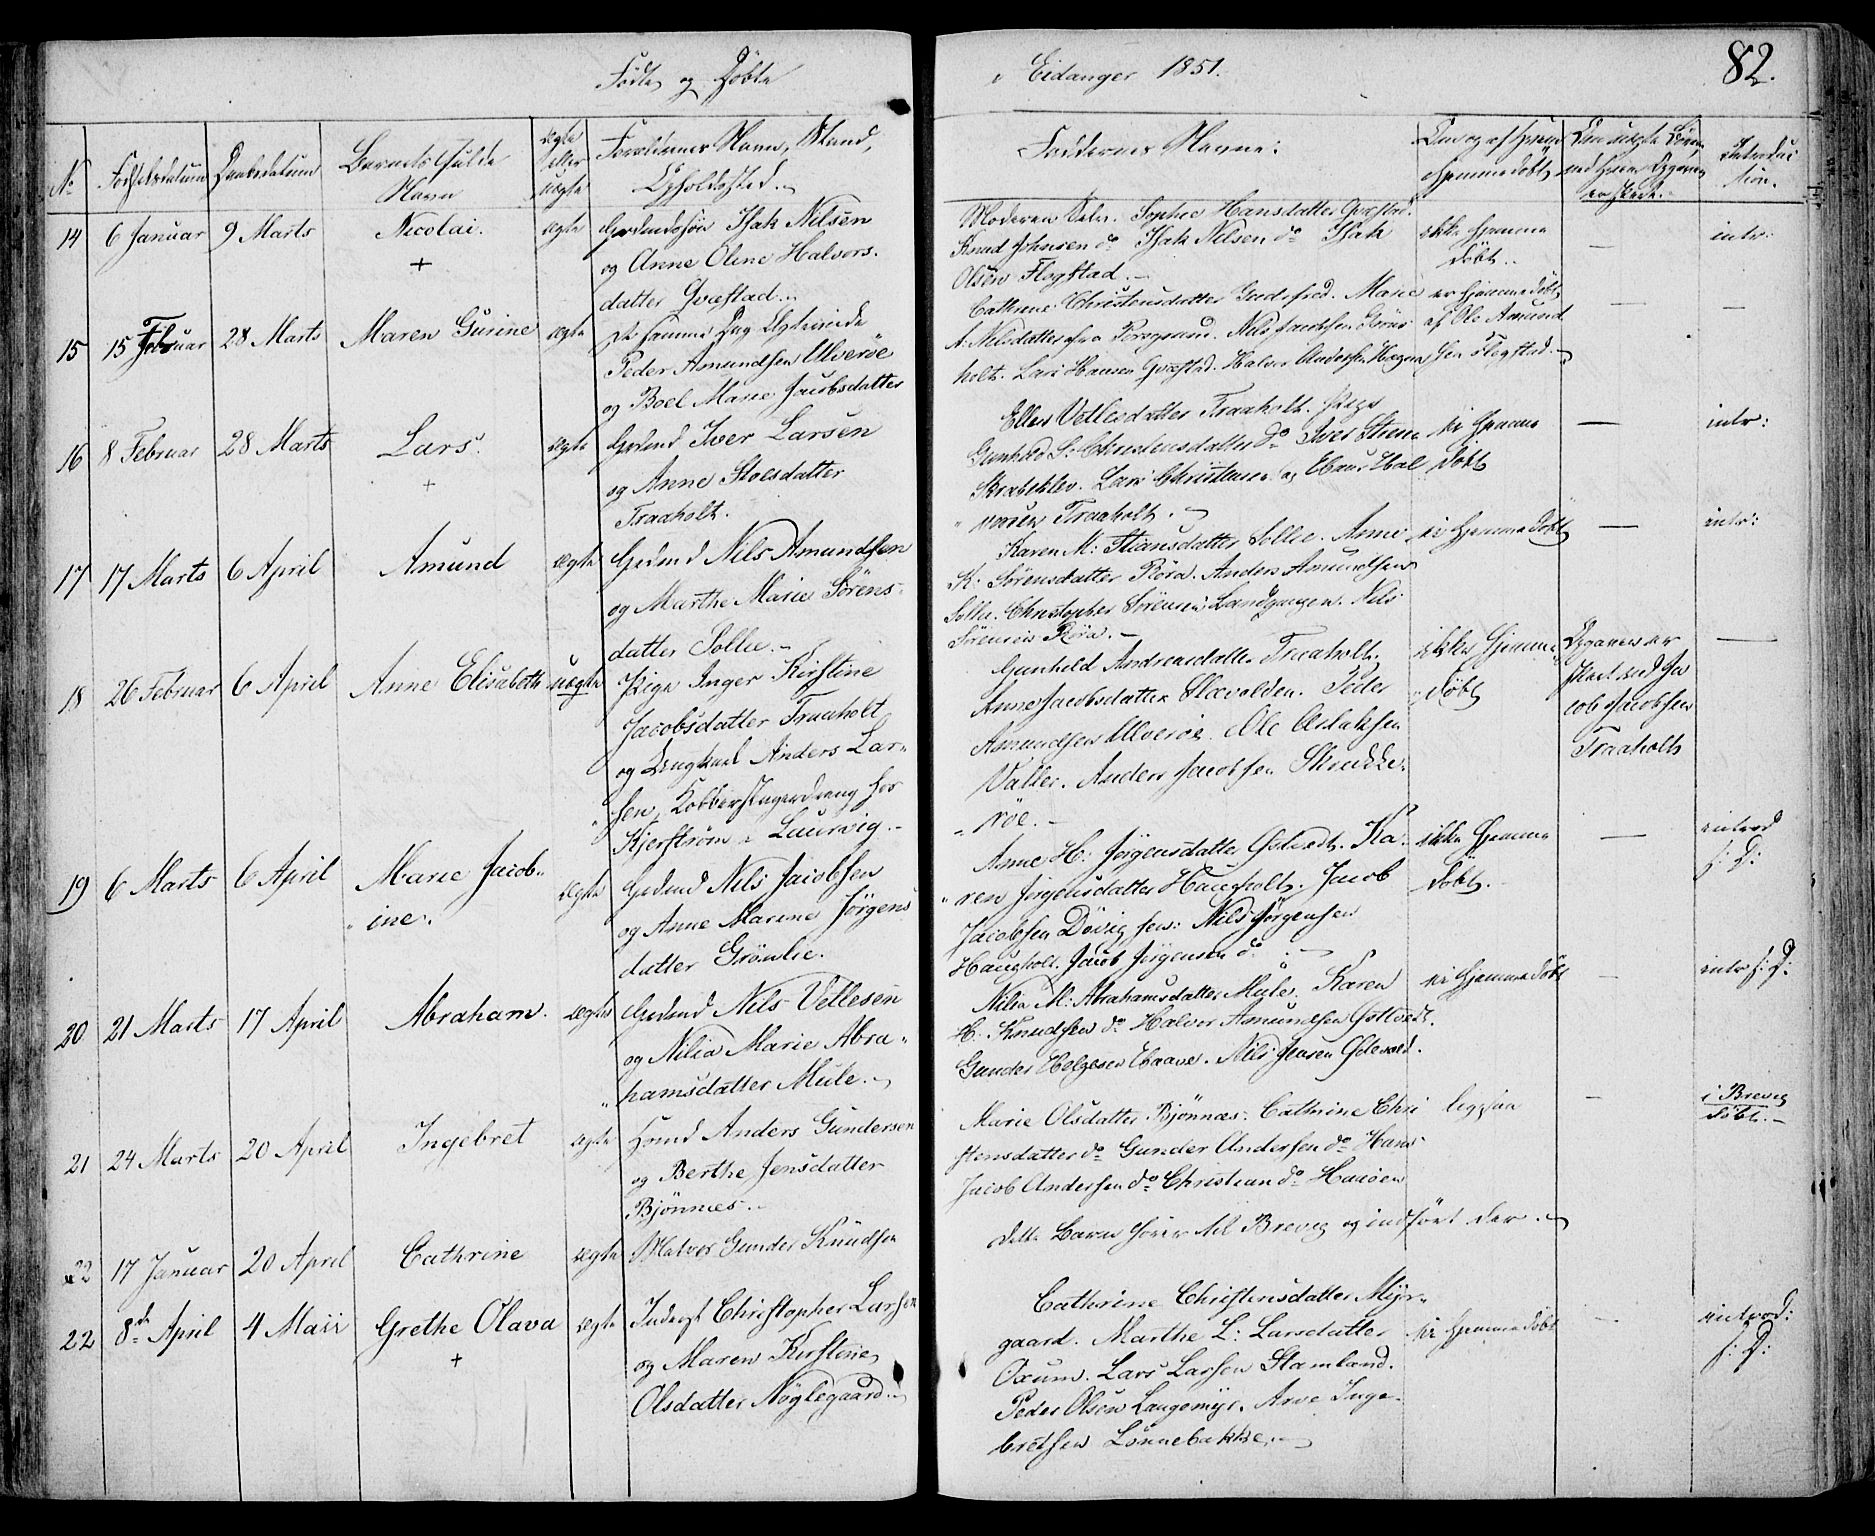 Fødte og Døbte
i Eidanger 1851.
82.
No
Fødselsdatum
Daabsdatum
Barnets fulde
Navn
ægte
eller
uægte
Forældrenes Navne, Stand,
Opholdssted.
Faddernes Navne:
Introduc
tion.
14
6 Januar
9 Marts
Nicolai.
+
ægte
Gaardmdssøn Isak Nilsen
og Anne Oline Halvors-
datter Qvæstad.
Moderen selv. Sophie Hansdatter Qvæstad.
Knud Johnsen do Isak Nilsen do Isak
Olsen Flogstad.
ikke hjemme
døbt.
—
intr:
15
15 Februar
28 Marts
Maren Gurine
ægte
Peder Amundsen Ulverøe
og Boel Marie Jacobsdatter
Cathrine Christensdatter Marie
A. Nilsdatter fra Porsgrund. Nils Jacobsen
holt. Lars Hansen Qvæstad. Halvor Andersen
er hjemmedøbt
af Ole Amund
sen Flogstad.
—
—
16
8 Februar
28 Marts
Lars.
+
ægte
Grdmd Iver Larsen
og Anne Stoesdatter
Traaholt.
Ellen Vetlesdatter Traaholt. Pige
Gunhild S. Christensdatter do Iver
Skrabeklev. Lars Christensen og Hans Hal
vorsen Traaholt.
ei hjemme
døbt
—
intr:
17
17 Marts
6 April
Amund
ægte
Grdmd Nils Amundsen
og Marthe Marie Sørens-
datter Sollie.
Karen M: Stiansdatter Sollie. Anne
K. Sørensdatter Røra. Anders Amundsen
Sollie. Christopher Sørensen Landgangen. Nils
Sørensen Røra.
ei hjemmedøbt
—
intr:
18
26 Februar
6 April
Anne Elisabeth
uægte
Pige Inger Kirstine
Jacobsdatter Traaholt
og Ungkarl Anders Lar-
sen, Kobberslagerdreng hos
Kjerstrøm i Laurvig.
Gunhild Andreasdatter Traaholt.
Anne Jacobsdatter Peder
Amundsen Ulverøe. Ole Aslaksen
Valler. Anders Jacobsen Skrukke-
røe.
ikke hjemme
døbt
Opgaven er
skeet ved Ja
cob Jacobsen
Traaholt
—
19
6 Marts
6 April
Marie Jacob-
ine.
ægte
Grdmd Nils Jacobsen
og Anne Marine Jørgens
datter Grønlie.
Anne H. Jørgensdatter Ka-
ren Jørgensdatter Haugholt. Jacob
Jacobsen Døvig sen: Nils Jørgensen
Haugholt. Jacob Jørgensen do
ikke hjemme
døbt.
—
introd
s: D:
20
21 Marts
17 April
Abraham.
ægte
Grdmd Nils Vetlesen
og Nilia Marie Abra-
hamsdatter Mule.
Nilia M: Abrahamsdatter Mule. Karen
H. Knudsen do Halvor Amundsen
Gunder Helgesen Haave. Nils Jensen
ei hjemmedøbt
—
intr s: D:
21
24 Marts
20 April
Ingebret
ægte
Hmd Anders Gundersen
og Berthe Jensdatter
Bjønnes.
Marie Olsdatter Bjønnæs. Cathrine Chri
stensdatter do Gunder Andersen do Hans
Jacob Andersen do Christian do Haaøen
ligesaa
—
i Brevig
døbt.
22
17 Januar
20 April
Cathrine
ægte
Matros Gunder Knudsen
dette Barn hører til Brevig og indført der.
22
8de April
4 Maii
Grethe Olava
+
ægte
Inderst Christopher Larsen
og Maren Kirstine
Olsdatter Nøglegaard.
Cathrine Christensdatter Myr-
gaard. Marthe L: Larsdatter
Oxum. Lars Larsen Stamland.
Peder Olsen Langemyr. Arve Inge-
bretsen Lønnebakke.
ei hjemmedøbt
—
introd:
s: D: